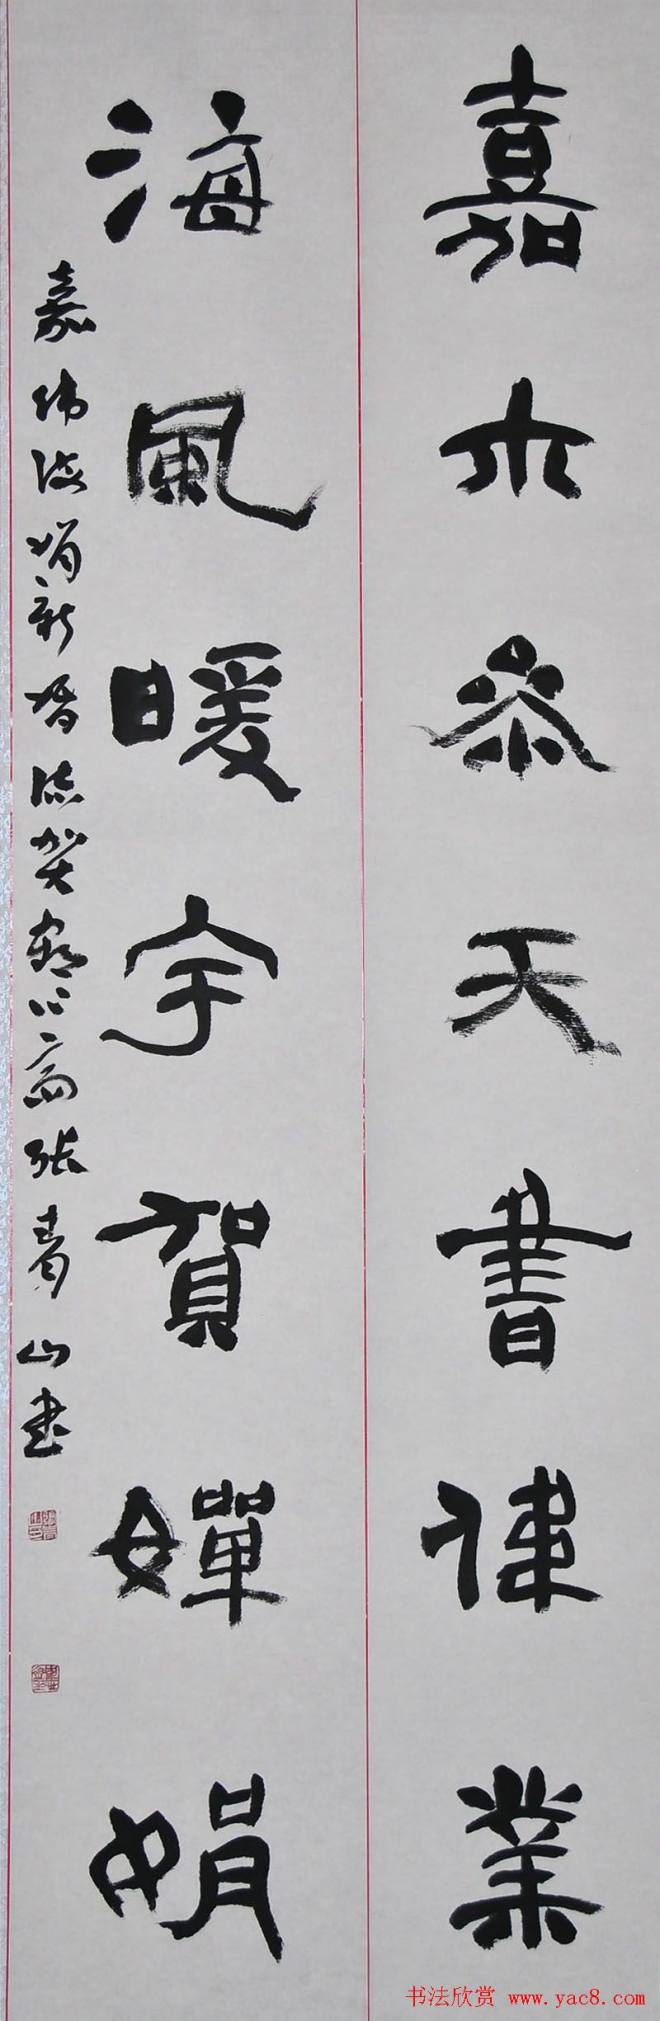 嘉木參天書偉業
海風暖宇賀嬋娟
嘉偉海娟新婚誌賀心齋張青山書
书法欣赏 www.yac8.com